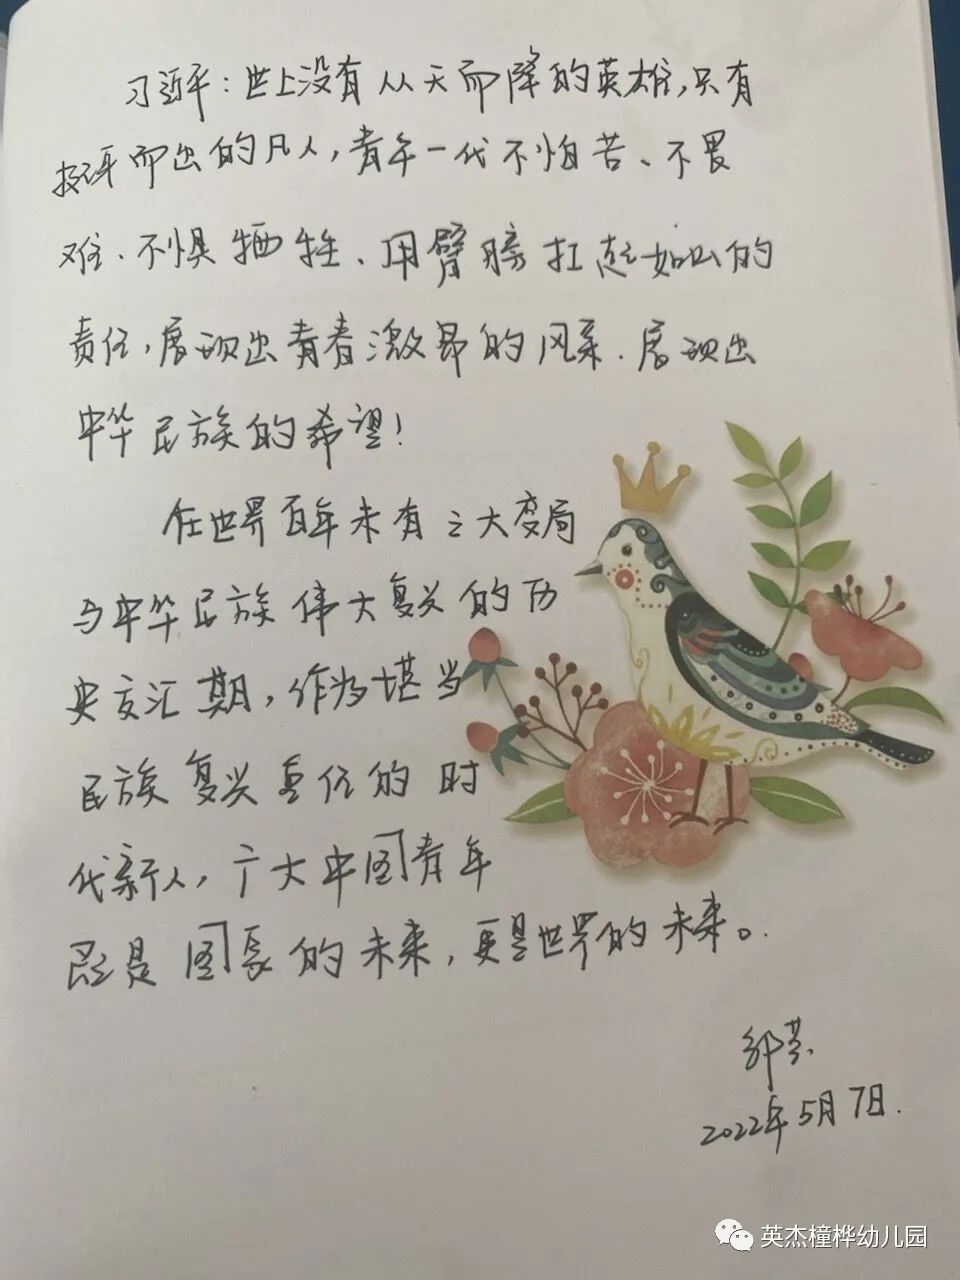 习近平：世上没有从天而降的英雄，只有
挺身而出的凡人，青年一代不怕苦、不畏
难、不惧牺牲、用臂膀扛起如山的
责任，展现出青春激昂的风采、展现出
中华民族的希望！
在世界百年未有之大变局
与中华民族伟大复兴的历
史交汇期，作为堪当
民族复兴重任的时
代新人，广大中国青年
既是国家的未来，更是世界的未来。
邹芸
2022年5月7日.
英杰橦桦幼儿园